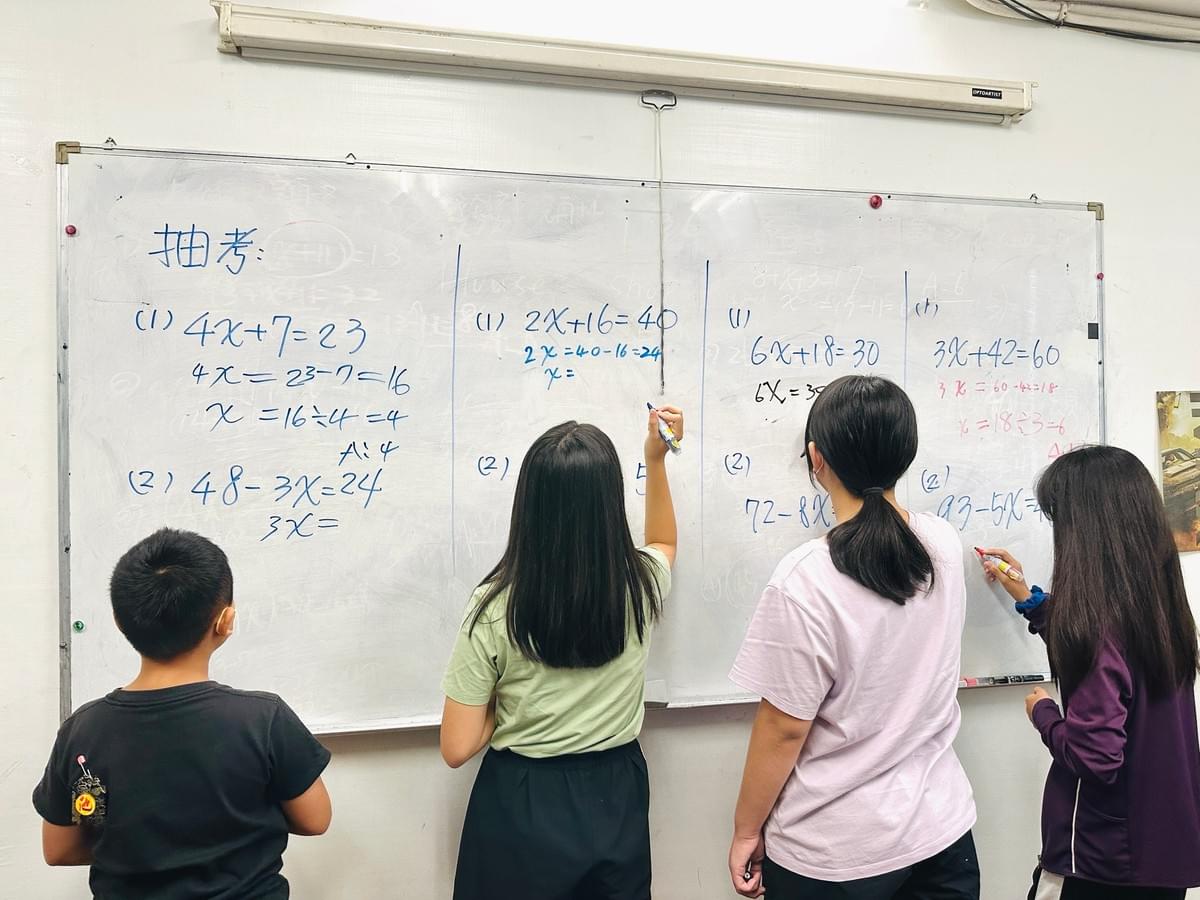 OPTOARTIST
抽考:
(1) 4x+7=23
4x=23-7=16
x=16÷4=4
A:4
(2) 48-3x=24
3x=
(1) 2x+16=40
2x=40-16=24
x=
(2)
(1)
6x+18=30
6x=3
(2)
72-8x
(1)
3x+42=60
3x=60-42=18
x=18÷3=6
(2)
93-5x=